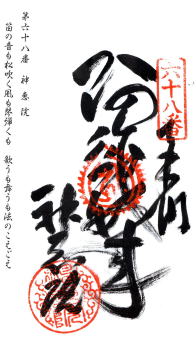 六十八番
奉納
阿弥陀如来
神恵院
第六十八番 神恵院
笛の音も松吹く風も琴弾くも 歌うも舞うも法のこえごえ